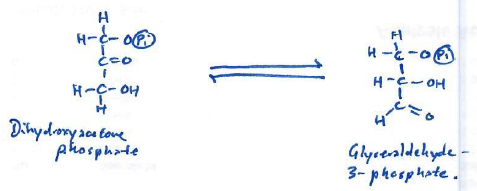 H
H-C-O(Pi)
C=O
H-C-OH
H
Dihydroxyacetone
phosphate
H
H-C-O(Pi)
H-C-OH
C=O
H
Glyceraldehyde-
3-phosphate.